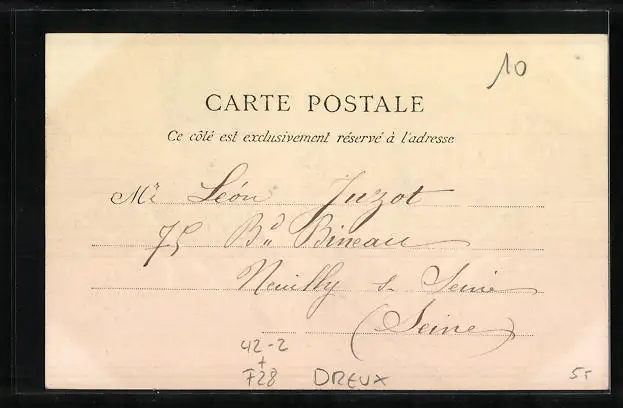 10
CARTE POSTALE
Ce côté est exclusivement réservé à l'adresse
Mr Léon Juzot
75 Bd Bineau
Neuilly s Seine
(Seine)
42-2
+
F28 DREUX 55